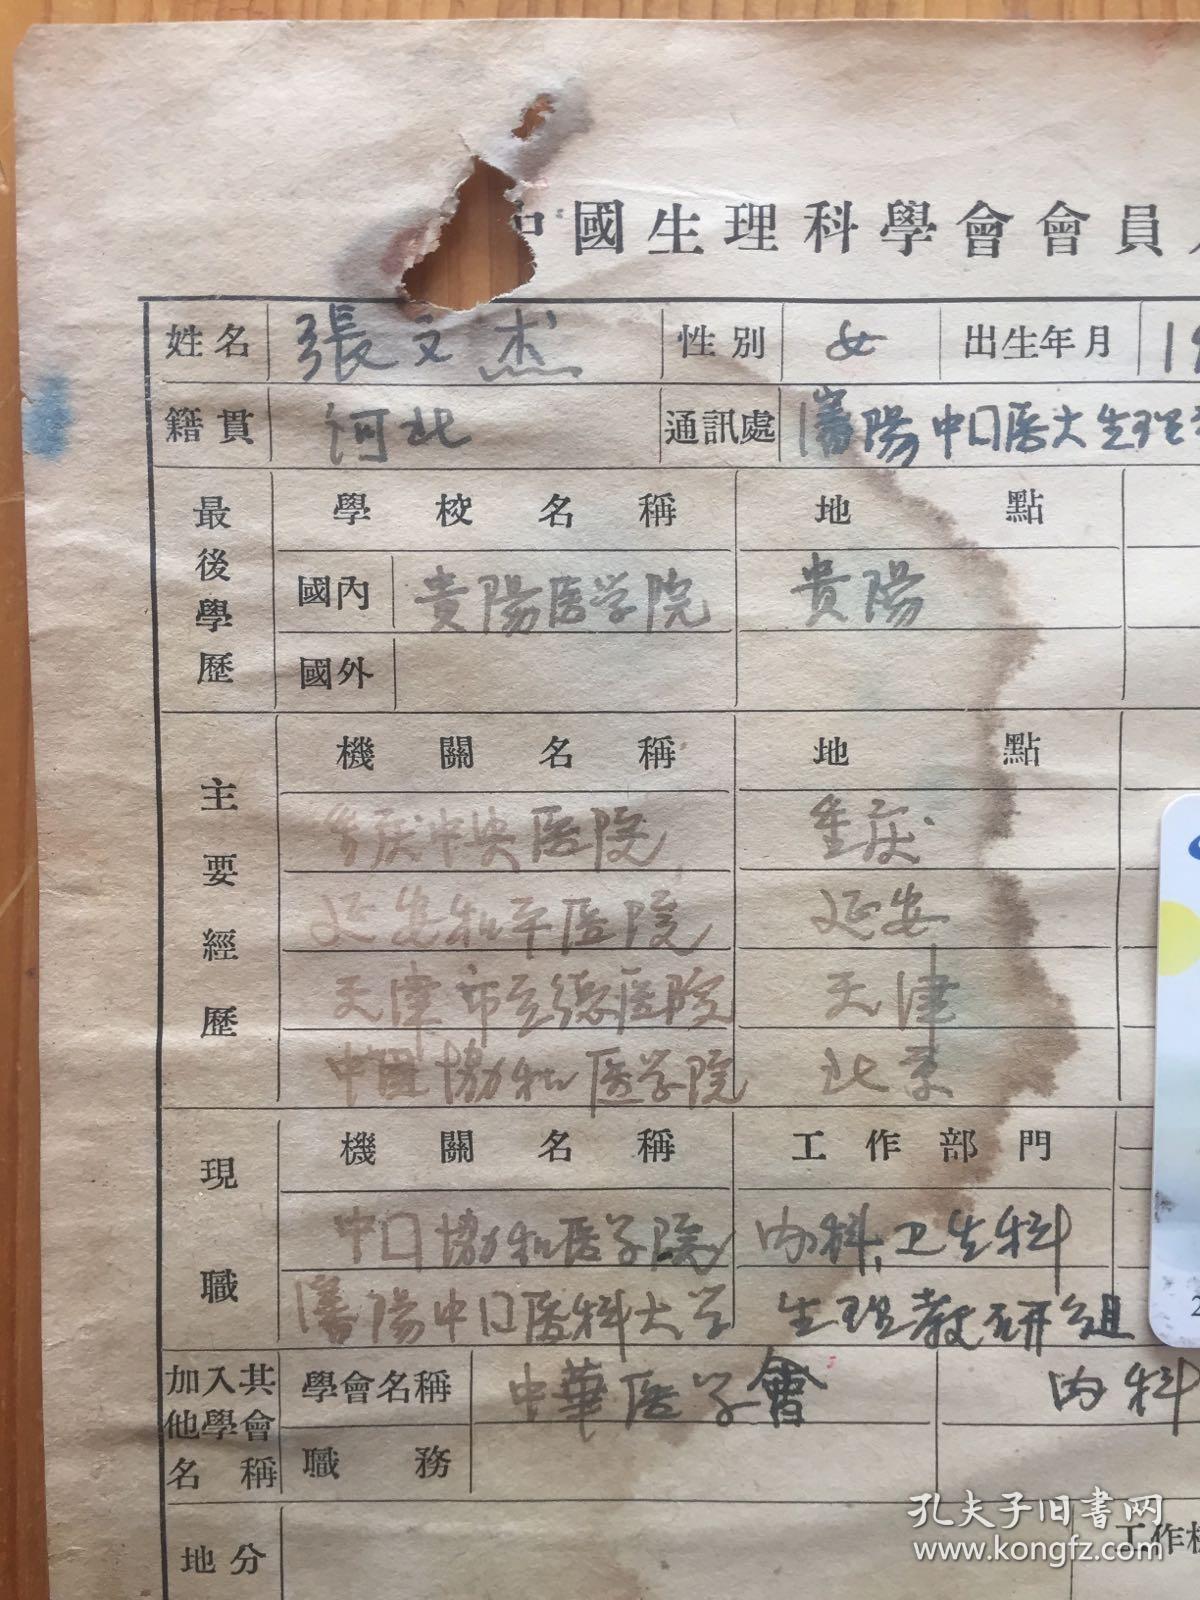 中國生理科學會會員
姓名 張文杰 性別 女 出生年月 19
籍貫 河北 通訊處 瀋陽中囗医大生理
最後學歷
學校名稱 地點
國內 貴陽医学院 貴陽
國外
主要經歷
機關名稱 地點
重庆中央医院 重庆
延安和平医院 延安
天津市立總医院 天津
中国協和医学院 北京
現職
機關名稱 工作部門
中囗協和医学院 内科、卫生科
瀋陽中囗医科大学 生理教研組
加入其他學會名稱
學會名稱 中華医学會 内科
職務
地分 工作
2
孔夫子旧书网
www.kongfz.com